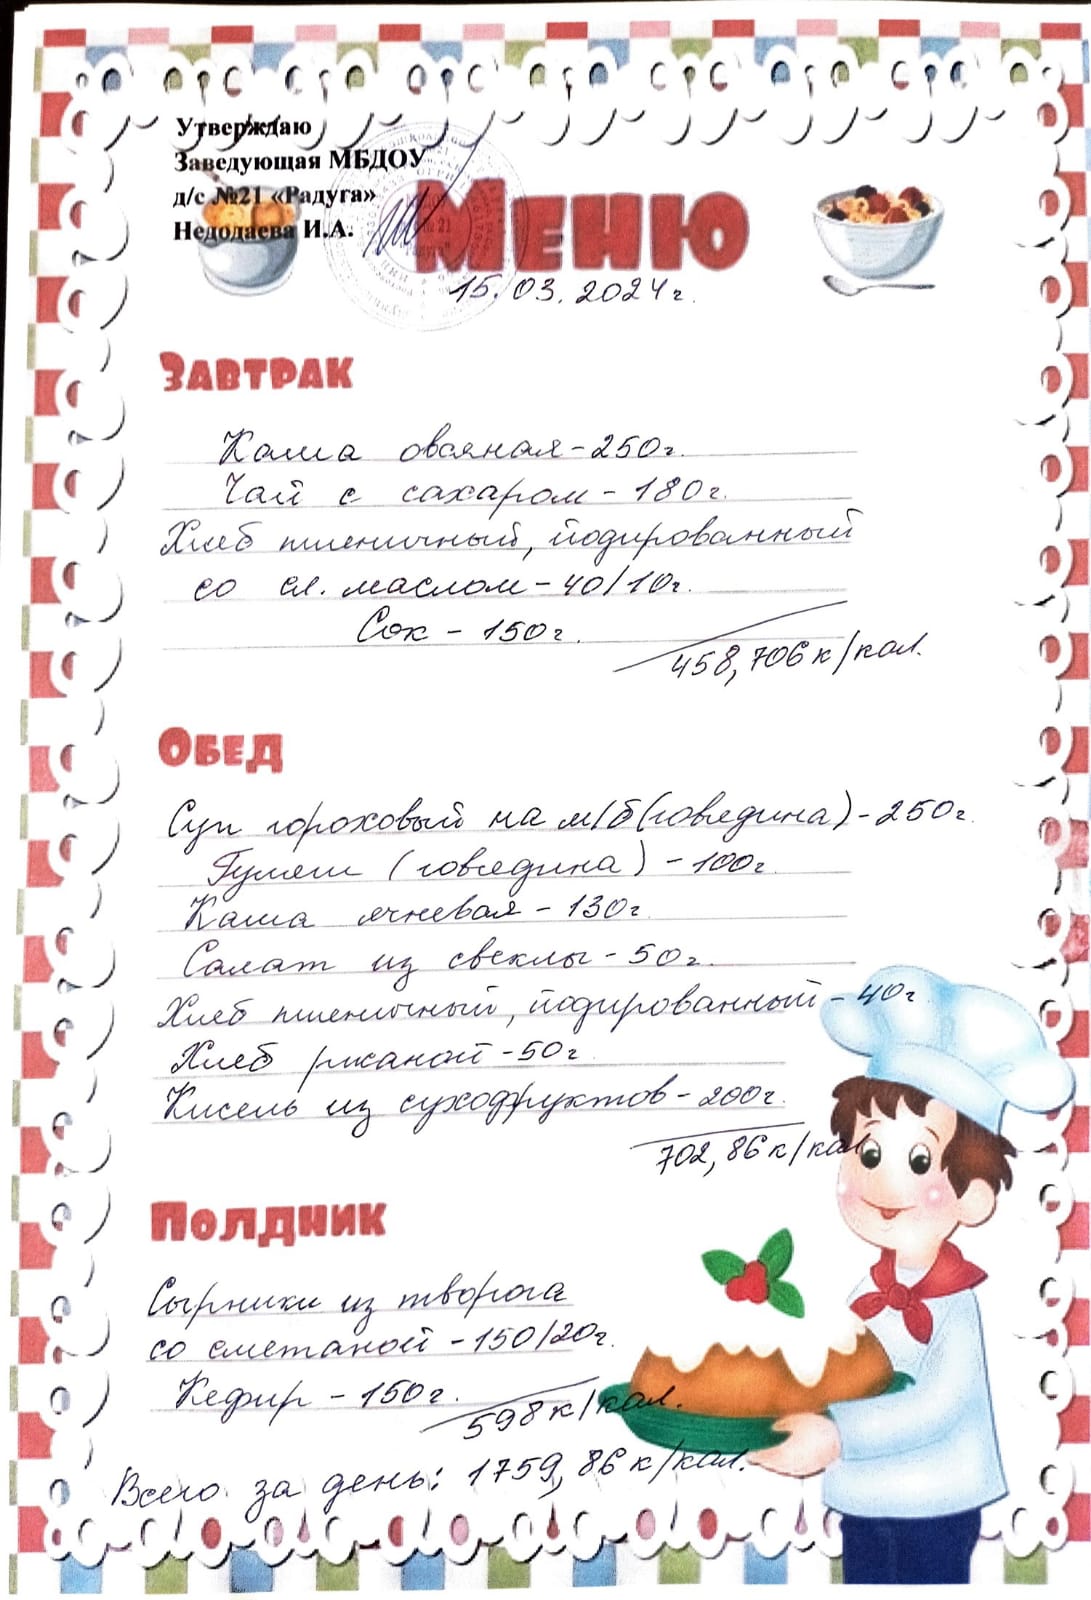 Утверждаю
Заведующая МБДОУ
д/с №21 «Радуга»
Недодаева И.А.
Меню
15.03.2024г.
Завтрак
Каша овсяная - 250г.
Чай с сахаром - 180г.
Хлеб пшеничный, йодированный
со сл. маслом - 40/10г.
Сок - 150г.
458,706 к/кал.
Обед
Суп гороховый на м/б (говядина) - 250г.
Гуляш (говядина) - 100г.
Каша ячневая - 130г.
Салат из свеклы - 50г.
Хлеб пшеничный, йодированный - 40г
Хлеб ржаной - 50г.
Кисель из сухофруктов - 200г.
702,86 к/кал.
Полдник
Сырники из творога
со сметаной - 150/20г.
Кефир - 150г.
598 к/кал.
Всего за день: 1759,86 к/кал.